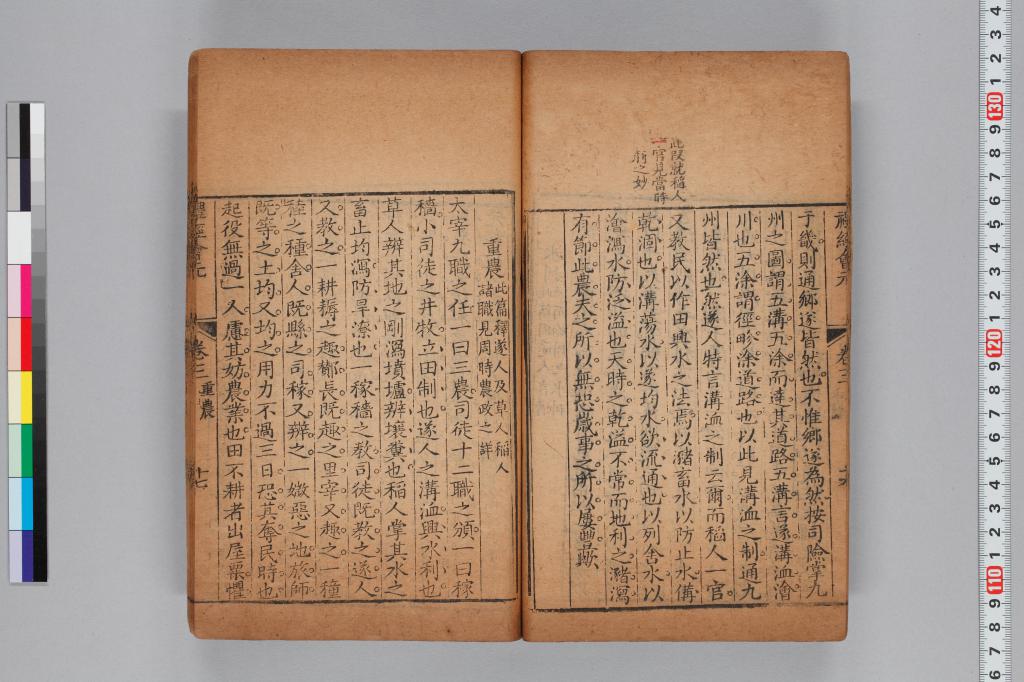 禮經會元
卷三
十六
于畿則通鄉遂皆然也不惟鄉遂為然按司險掌九
州之圖謂五溝五涂而達其道路五溝言遂溝洫澮
川也五涂謂徑畛涂道路也以此見溝洫之制通九
州皆然也然遂人特言溝洫之制云爾而稻人一官
又教民以作田與水之法焉以瀦畜水以防止水備
乾涸也以溝蕩水以遂均水欲流通也以列舍水以
澮瀉水防泛溢也天時之乾溢不常而地利之瀦瀉
有節此農夫之所以無恐歲事之所以屢豐歟
此段就稻人
一官見當時
備之妙
重農此篇釋遂人及草人稻人
諸職見周時農政之詳
太宰九職之任一曰三農司徒十二職之頒一曰稼
穡小司徒之井牧立田制也遂人之溝洫興水利也
草人辨其地之剛瀉墳壚辨壤糞也稻人掌其水之
畜止均瀉防旱潦也一稼穡之教司徒既教之遂人
又教之一耕耨之趣酇長既趣之里宰又趣之一穜
稑之種舍人既縣之司稼又辨之一媺惡之地旅師
既等之土均又均之用力不過三日恐其奪民時也
起役無過一人慮其妨農業也田不耕者出屋粟懼
禮經會元
卷三 重農
十七
130
120
110